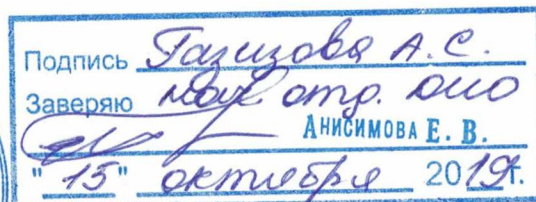 Подпись Газизова А.С.
Заверяю нач отд. ОИО
Анисимова Е. В.
"15" октября 2019г.